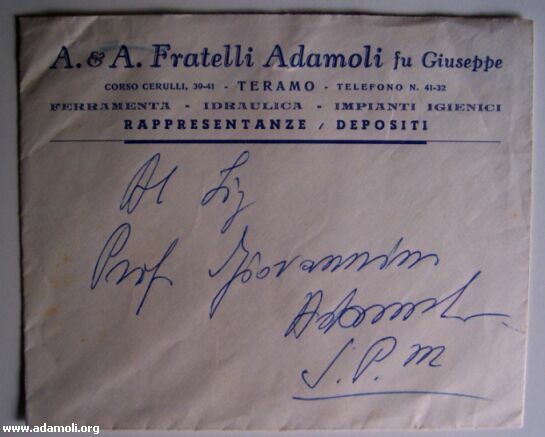 A. & A. Fratelli Adamoli fu Giuseppe
CORSO CERULLI, 39-41 - TERAMO - TELEFONO N. 41-32
FERRAMENTA - IDRAULICA - IMPIANTI IGIENICI
RAPPRESENTANZE / DEPOSITI
Al Sig
Prof Giovannini
S. P. M
www.adamoli.org